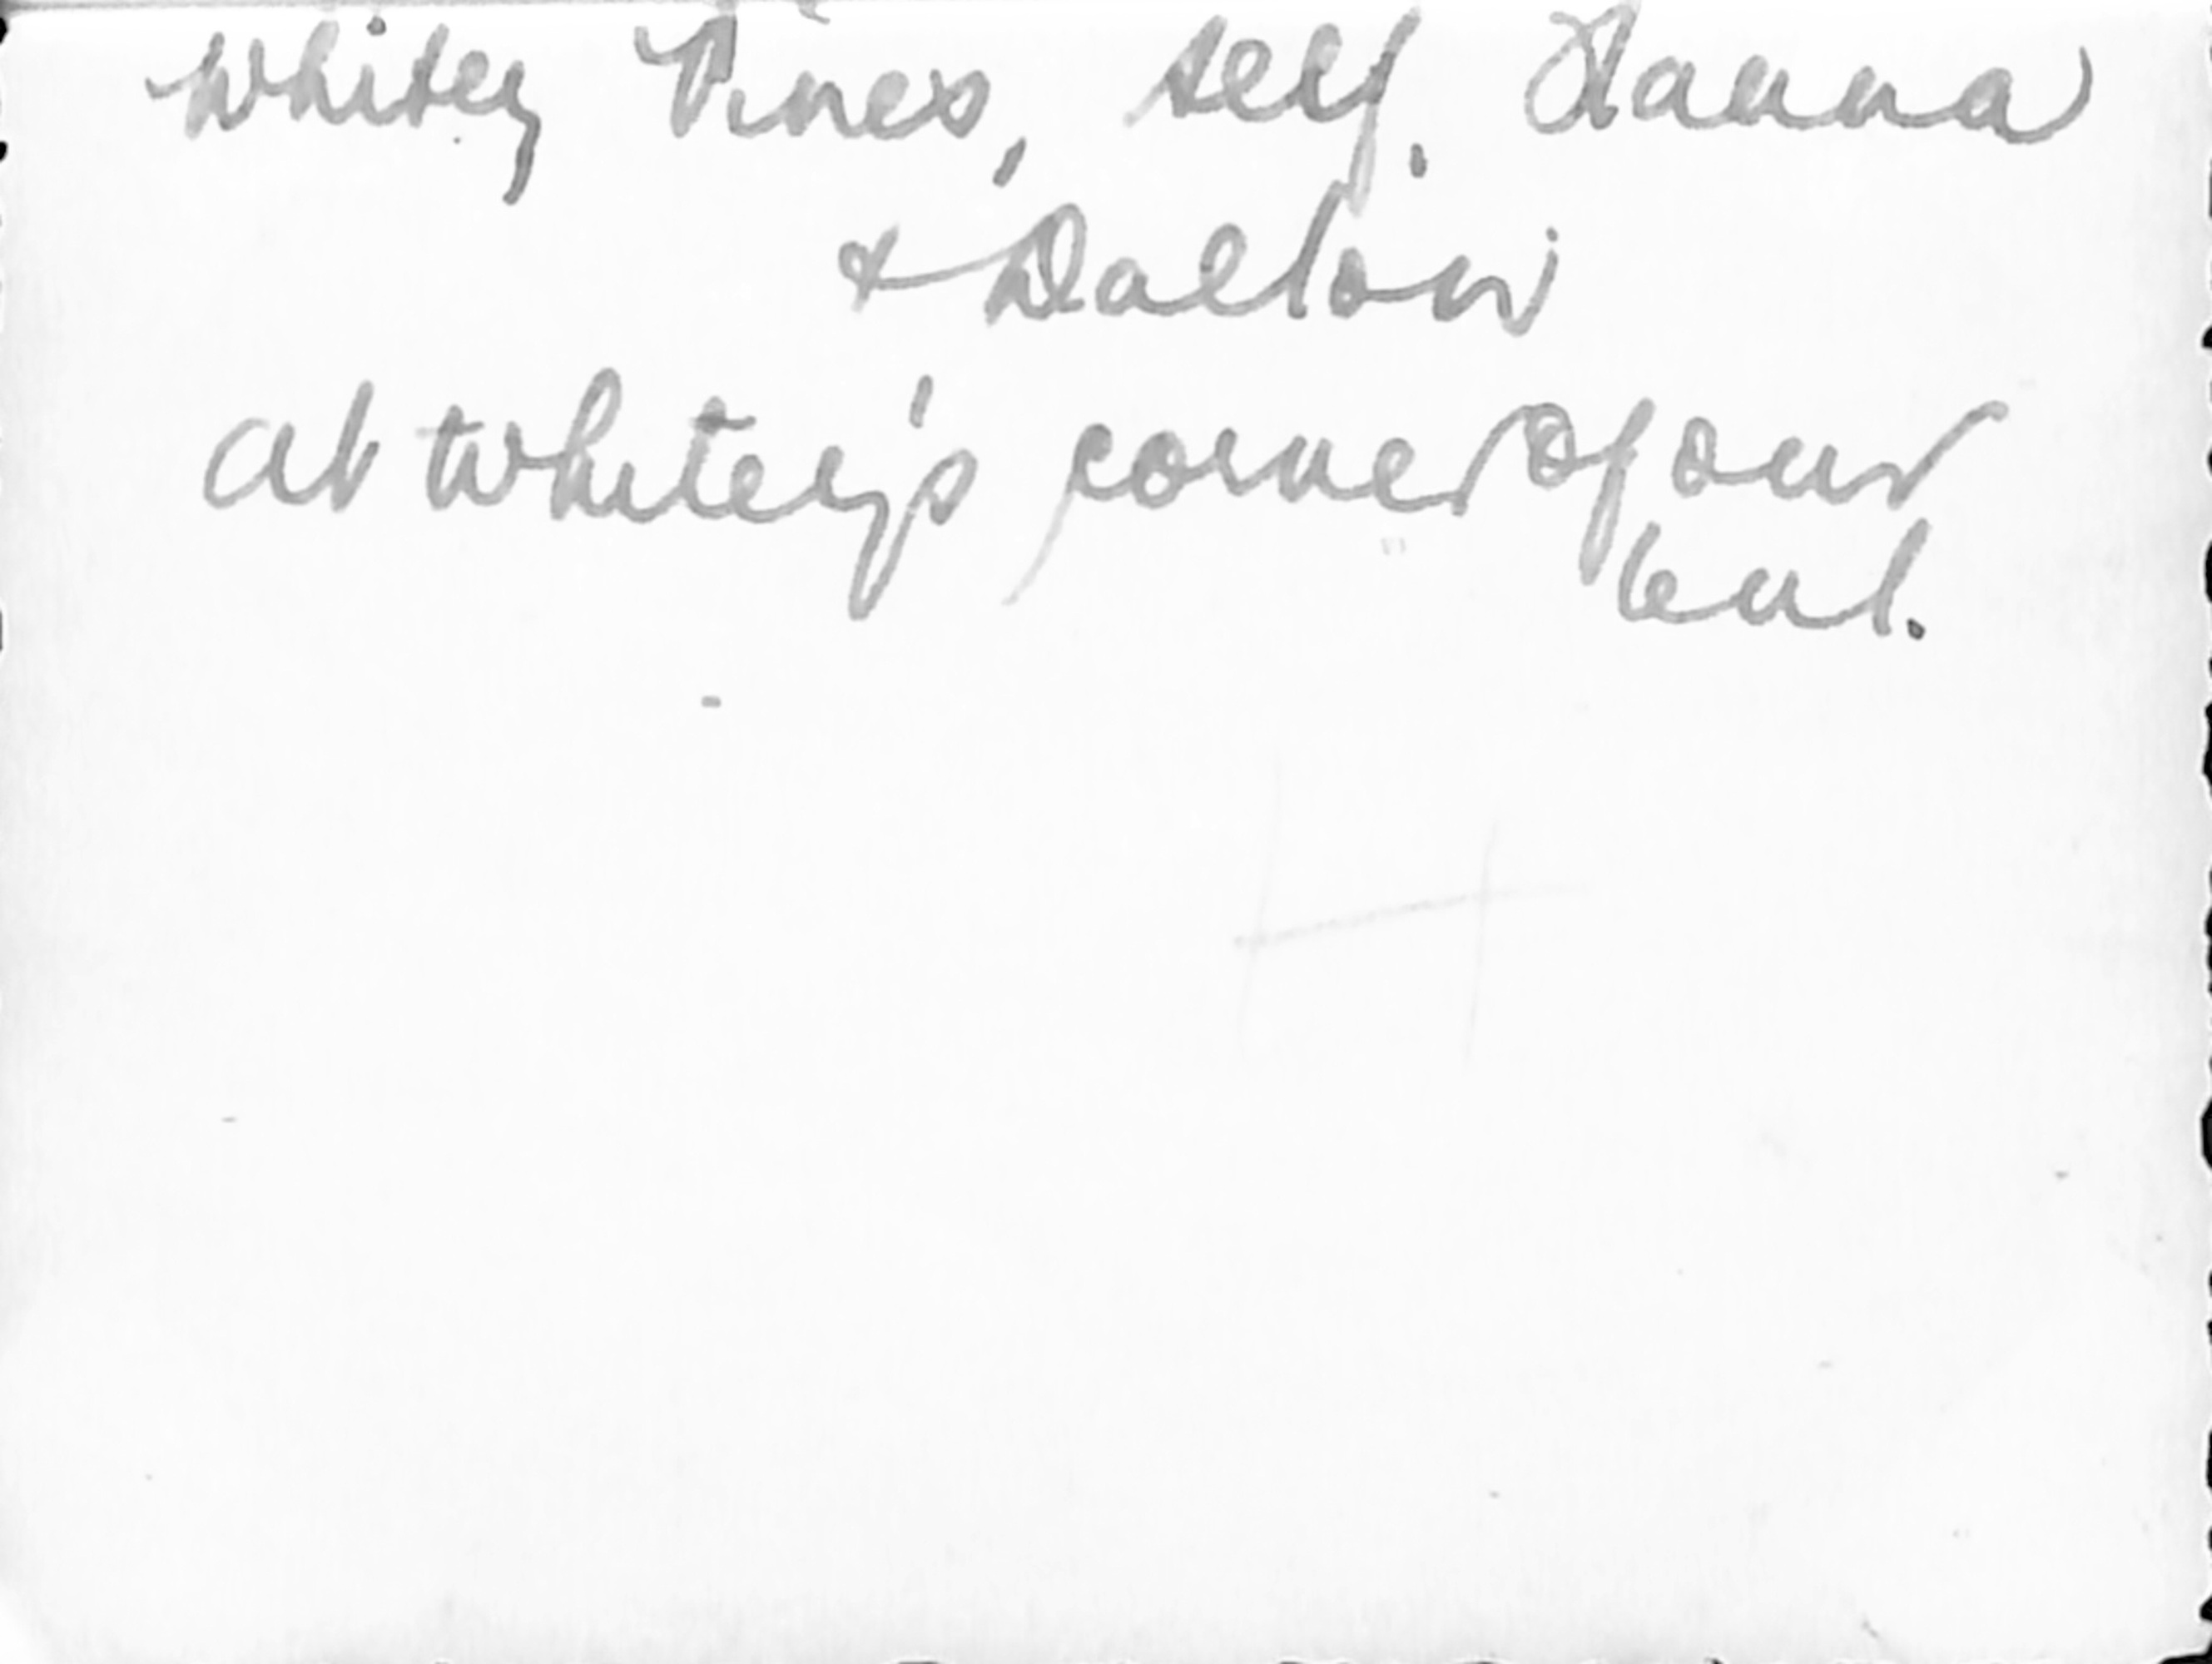 Whitey Pines, self. Hanna
& Dalton
at Whitey's corner of our
tent.